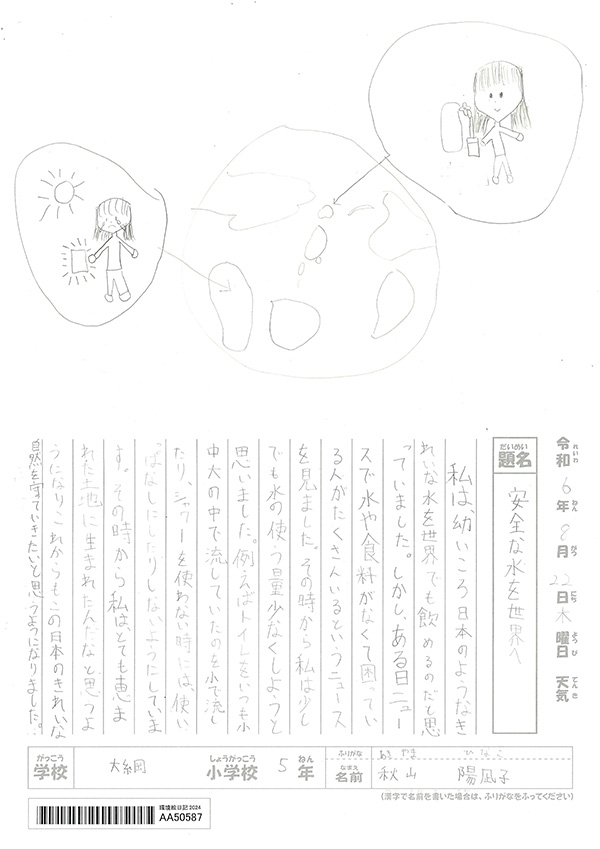 令和6年8月22日木曜日 天気
れいわ ねん がつ にち ようび てんき
だいめい
題名 安全な水を世界へ
私は、幼いころ日本のようなき
れいな水を世界でも飲めるのだと思
っていました。しかし、ある日ニュー
スで水や食料がなくて困ってい
る人がたくさんいるというニュース
を見ました。その時から私は少し
でも水の使う量少なくしようと
思いました。例えばトイレをいつも小
中大の中で流していたのを小で流し
たり、シャワーを使わない時には、使い
っぱなしにしたりしないようにしていま
す。その時から私は、とても恵ま
れた土地に生まれたんだなと思うよ
うになりこれからもこの日本のきれいな
自然を守っていきたいと思うようになりました。
がっこう しょうがっこう ねん ふりがな あき やま ひなこ
学校 大綱 小学校 5 年 なまえ 名前 秋山 陽凪子
(漢字で名前を書いた場合は、ふりがなをふってください)
環境絵日記2024
AA50587